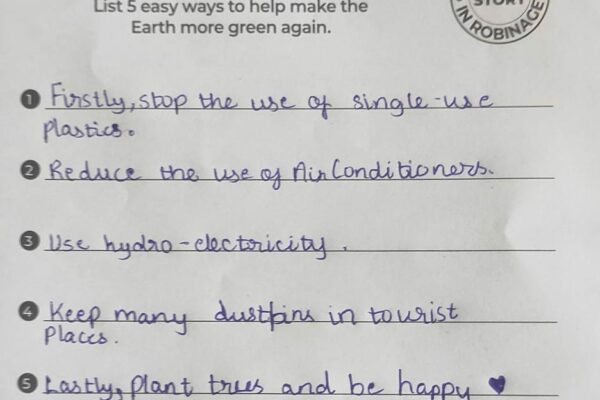 List 5 easy ways to help make the
Earth more green again.
STORY
IN ROBINAGE
1 Firstly, stop the use of single-use
plastics.
2 Reduce the use of Air Conditioners.
3 Use hydro-electricity.
4 Keep many dustbins in tourist
Places.
5 Lastly, plant trees and be happy ♥